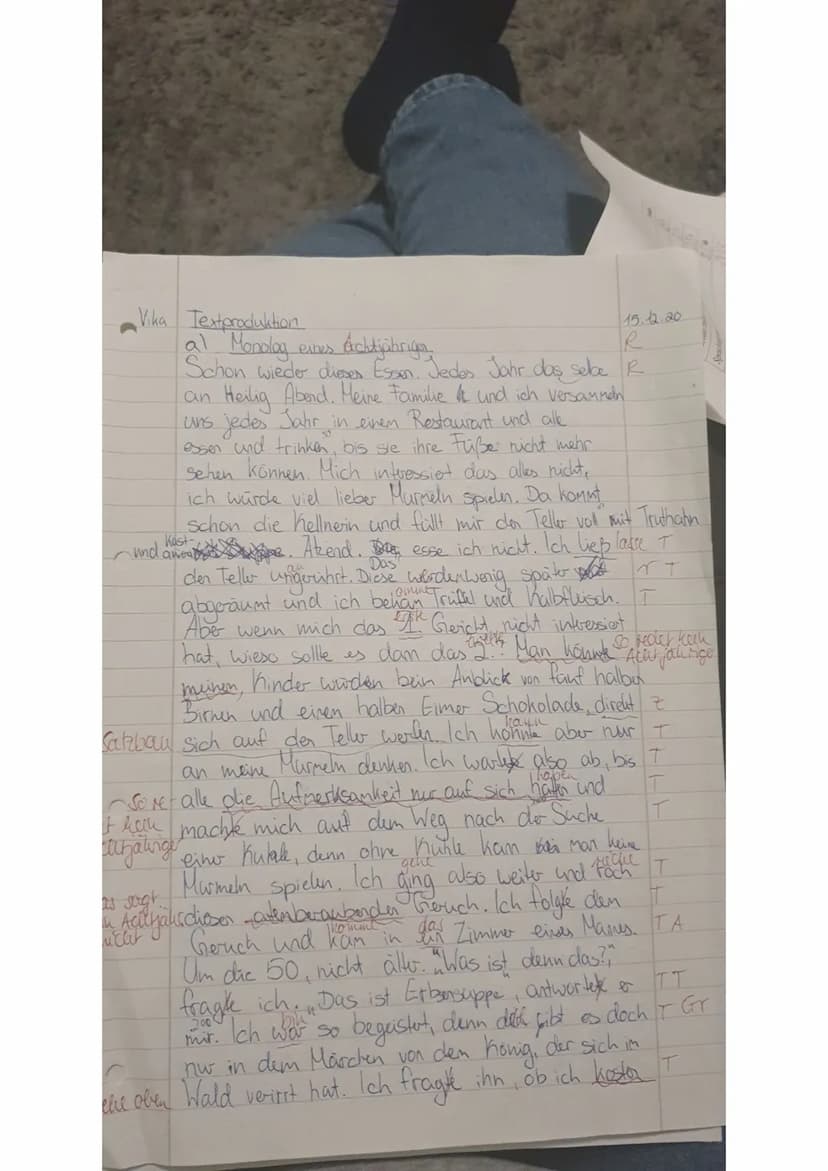 Vika Textproduktion 15.12.20
a) Monolog eines Achtjährigen R
Schon wieder dieses Essen. Jedes Jahr das selbe R
an Heilig Abend. Meine Familie und ich versammeln
uns jedes Jahr in einem Restaurant und alle
essen und trinken, bis sie ihre Füße nicht mehr
sehen können. Mich intressiert das alles nicht,
ich würde viel lieber Murmeln spielen. Da kommt
schon die Kellnerin und füllt mir den Teller voll mit Truthahn
und . Das esse ich nicht. Ich ließ lasse T
den Teller ungerührt. Diese werden wenig später r T
abgeräumt und ich bekam Trüffel und Kalbfleisch. T
Aber wenn mich das 1. Gericht nicht intressiert
hat, wieso sollte es dann das 2.? Man könnte so redet kein
meinen, Kinder würden beim Anblick von fünf halben Achtjähriger
Birnen und einen halben Eimer Schokolade, direkt Z
Satzbau sich auf den Teller werfen. Ich konnte kann aber nur T
an meine Murmeln denken. Ich warte also ab, bis T
alle die Aufmerksamkeit nur auf sich hatten haben und T
machte mich auf dem Weg nach der Suche T
einer Kuhle, denn ohne Kuhle kann man keine
Murmeln spielen. Ich ging gehe also weiter und roch rieche T
diesen atemberaubenden Geruch. Ich folgte dem T
Geruch und kam kommt in ein das Zimmer eines Mannes. T A
Um die 50, nicht älter. "Was ist denn das?",
fragte ich. "Das ist Erbsensuppe", antwortete er T T
mir. Ich war bin so begeistert, denn gibt es doch T Gr
nur in dem Märchen von dem König, der sich im
oben Wald verirrt hat. Ich fragte ihn, ob ich kosten T